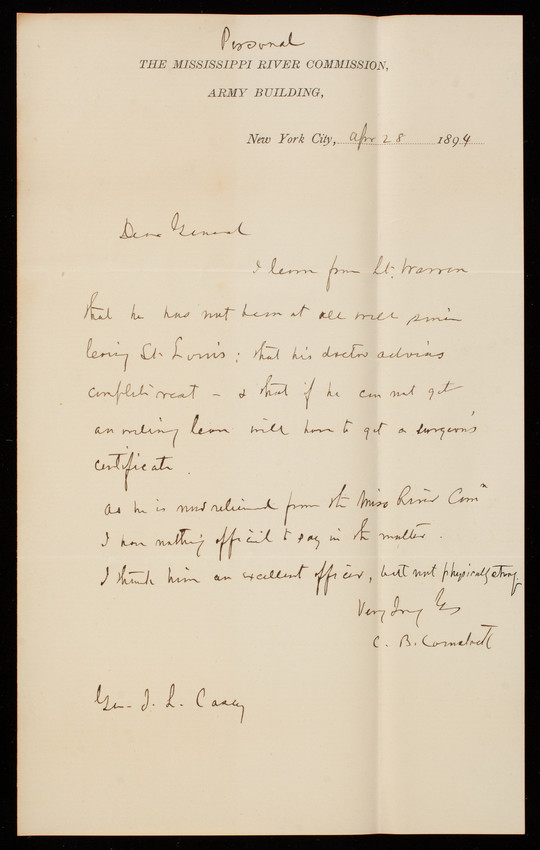 Personal
THE MISSISSIPPI RIVER COMMISSION,
ARMY BUILDING,
New York City, Apr 28 1894
Dear General
I learn from Lt. Warren
that he has not been at all well since
leaving St. Louis; that his doctor advises
complete rest - & that if he can not get
an ordinary leave will have to get a surgeon's
certificate.
As he is now relieved from the Miss River Comn
I have nothing official to say in the matter.
I think him an excellent officer, but not physically strong
Very Truly Yrs
C. B. Comstock
Gen. T. L. Casey